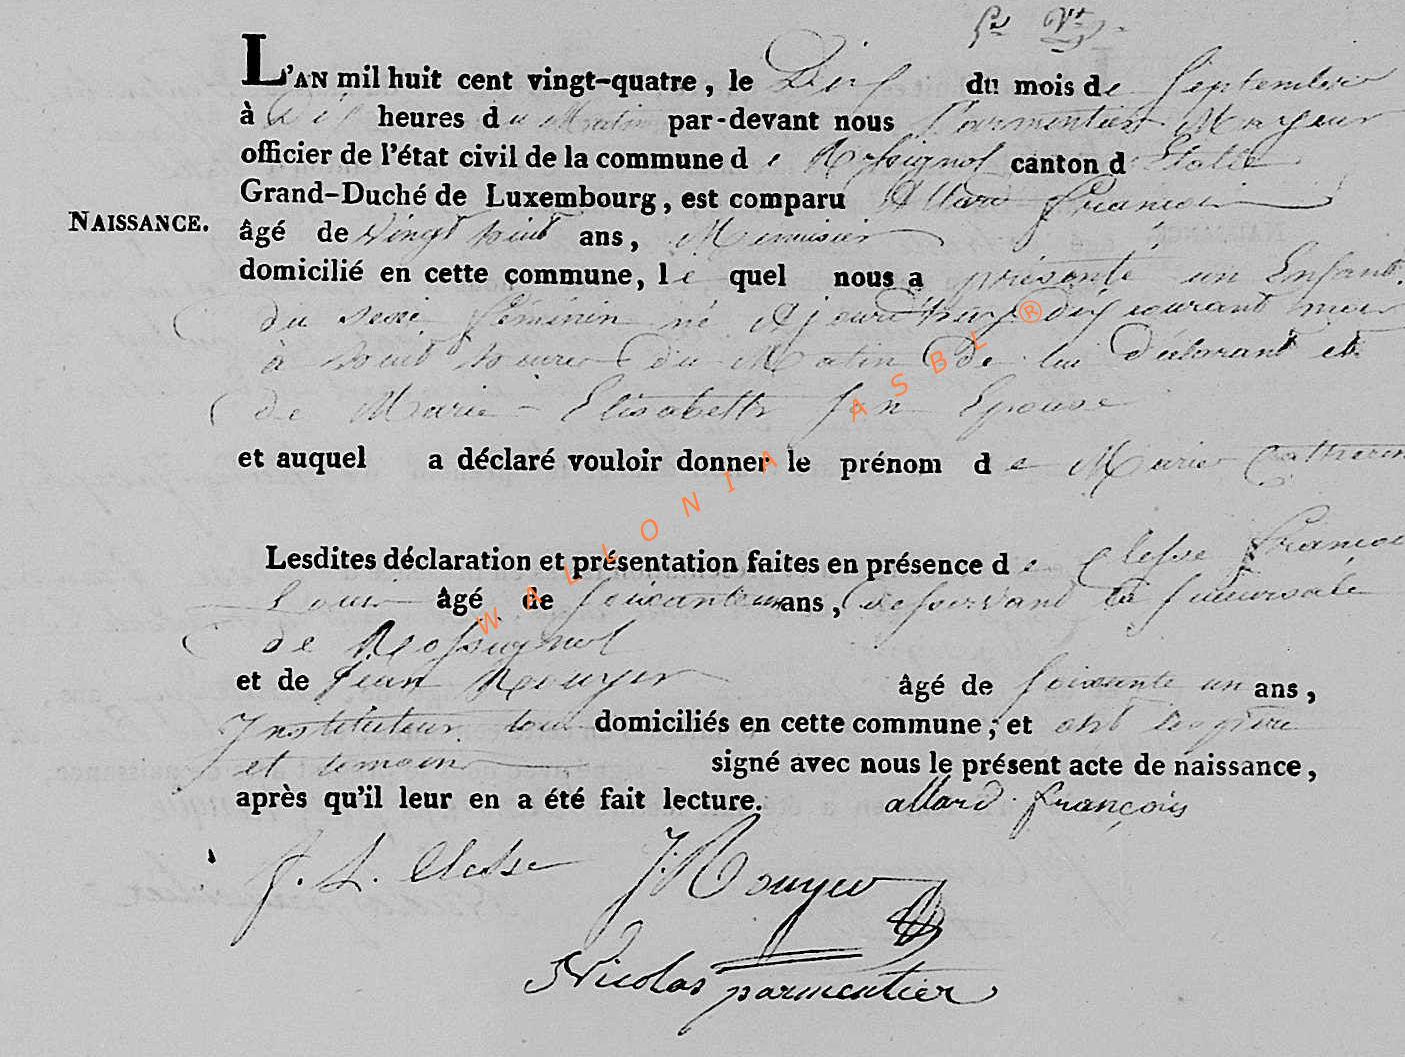 L'AN mil huit cent vingt-quatre, le Dix du mois de Septembre
à Dix heures du Matin par-devant nous Parmentier Mayeur
officier de l'état civil de la commune de Rossignol canton d'Etalle
Grand-Duché de Luxembourg, est comparu Allard François
NAISSANCE.
âgé de Vingt huit ans, Menuisier
domicilié en cette commune, le quel nous a présenté un Enfant
du sexe féminin né Ajourd'huy dix courant mois
à huit heures du Matin De lui Déclarant et
de Marie-Elisabeth Jan Epouse
et auquel a déclaré vouloir donner le prénom de Marie Catherin
Lesdites déclaration et présentation faites en présence de Clesse François
Louis âgé de soixante ans, Desservant la succursale
de Rossignol
et de Jean Rouyer âgé de soixante un ans,
Instituteur tous domiciliés en cette commune; et ont
et temoins signé avec nous le présent acte de naissance,
après qu'il leur en a été fait lecture. allard françois
F. L. Clesse J. Rouyer
Nicolas parmentier
WALLONIA ASBL ®